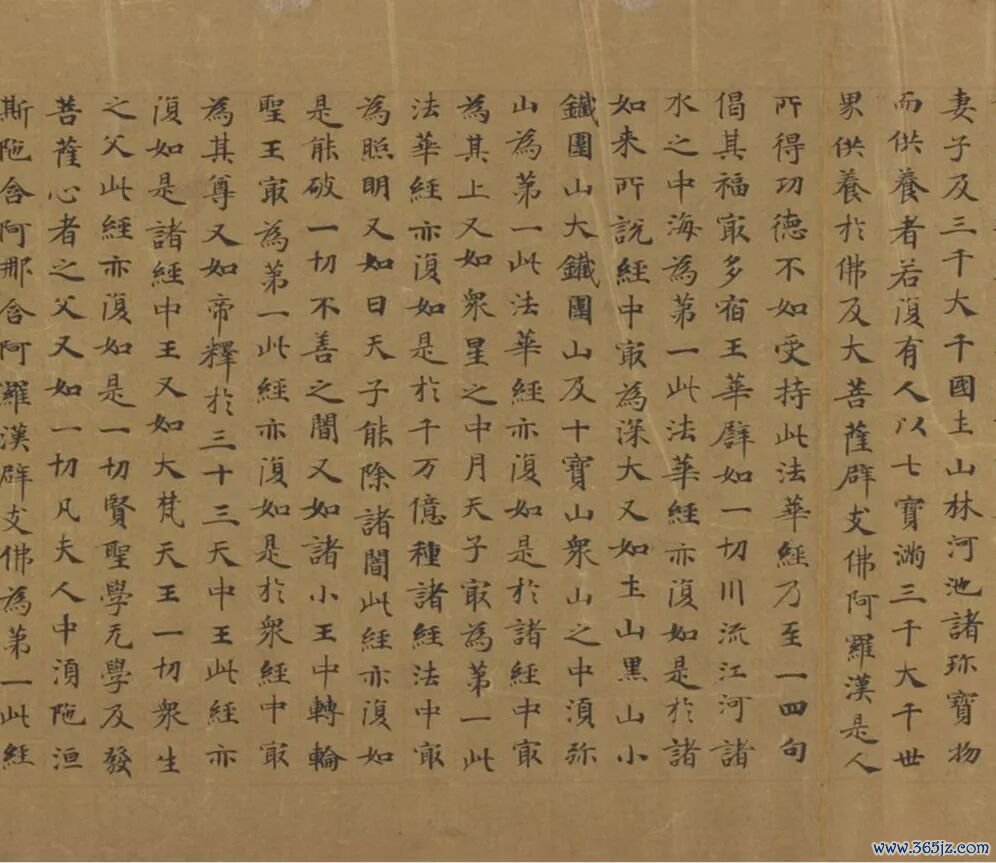 妻子及三千大千國土山林河池諸珍寶物
而供養者若復有人以七寶滿三千大千世
界供養於佛及大菩薩辟支佛阿羅漢是人
所得功德不如受持此法華經乃至一四句
偈其福冣多宿王華譬如一切川流江河諸
水之中海為第一此法華經亦復如是於諸
如來所說經中冣為深大又如土山黑山小
鐵圍山大鐵圍山及十寶山衆山之中須弥
山為第一此法華經亦復如是於諸經中冣
為其上又如衆星之中月天子冣為第一此
法華經亦復如是於千万億種諸經法中冣
為照明又如日天子能除諸闇此經亦復如
是能破一切不善之闇又如諸小王中轉輪
聖王冣為第一此經亦復如是於衆經中冣
為其尊又如帝釋於三十三天中王此經亦
復如是諸經中王又如大梵天王一切衆生
之父此經亦復如是一切賢聖學无學及發
菩薩心者之父又如一切凡夫人中須陁洹
斯陁含阿那含阿羅漢辟支佛為第一此經
www.365jz.com